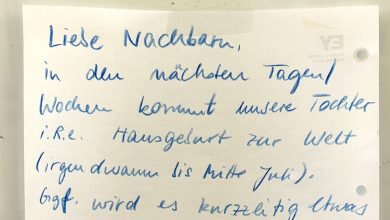 Liebe Nachbarn,
EY
in den nächsten Tagen/
Wochen kommt unsere Tochter
i.R.e. Hausgeburt zur Welt
(irgendwann bis Mitte Juli).
Ggf. wird es kurzzeitig etwas